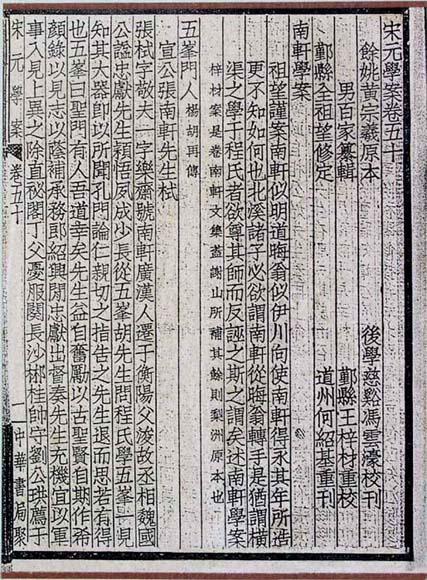 宋元學案卷五十
餘姚黃宗羲原本
後學慈谿馮雲濠校刊
男百家纂輯
鄞縣王梓材重校
鄞縣全祖望修定
道州何紹基重刊
南軒學案
祖望謹案南軒似明道晦翁似伊川向使南軒得永其年所造
更不知如何也北溪諸子必欲謂南軒從晦翁轉手是猶謂橫
渠之學于程氏者欲尊其師而反誣之斯之謂矣述南軒學案
梓材案是卷南軒文集蓋謝山所補其餘則梨洲原本也
五峯門人楊胡再傳
宣公張南軒先生栻
張栻字敬夫一字樂齋號南軒廣漢人遷于衡陽父浚故丞相魏國
公諡忠獻先生穎悟夙成少長從五峯胡先生問程氏學五峯一見
知其大器即以所聞孔門論仁親切之指告之先生退而思若有得
也五峯曰聖門有人吾道幸矣先生益自奮勵以古聖賢自期作希
顏錄以見志以蔭補承務郎紹興閒忠獻出督奏先生充機宜以軍
事入見上異之除直祕閣丁父憂服闋長沙郴桂帥守劉公珙薦于
宋元學案 卷五十 一 中華書局聚